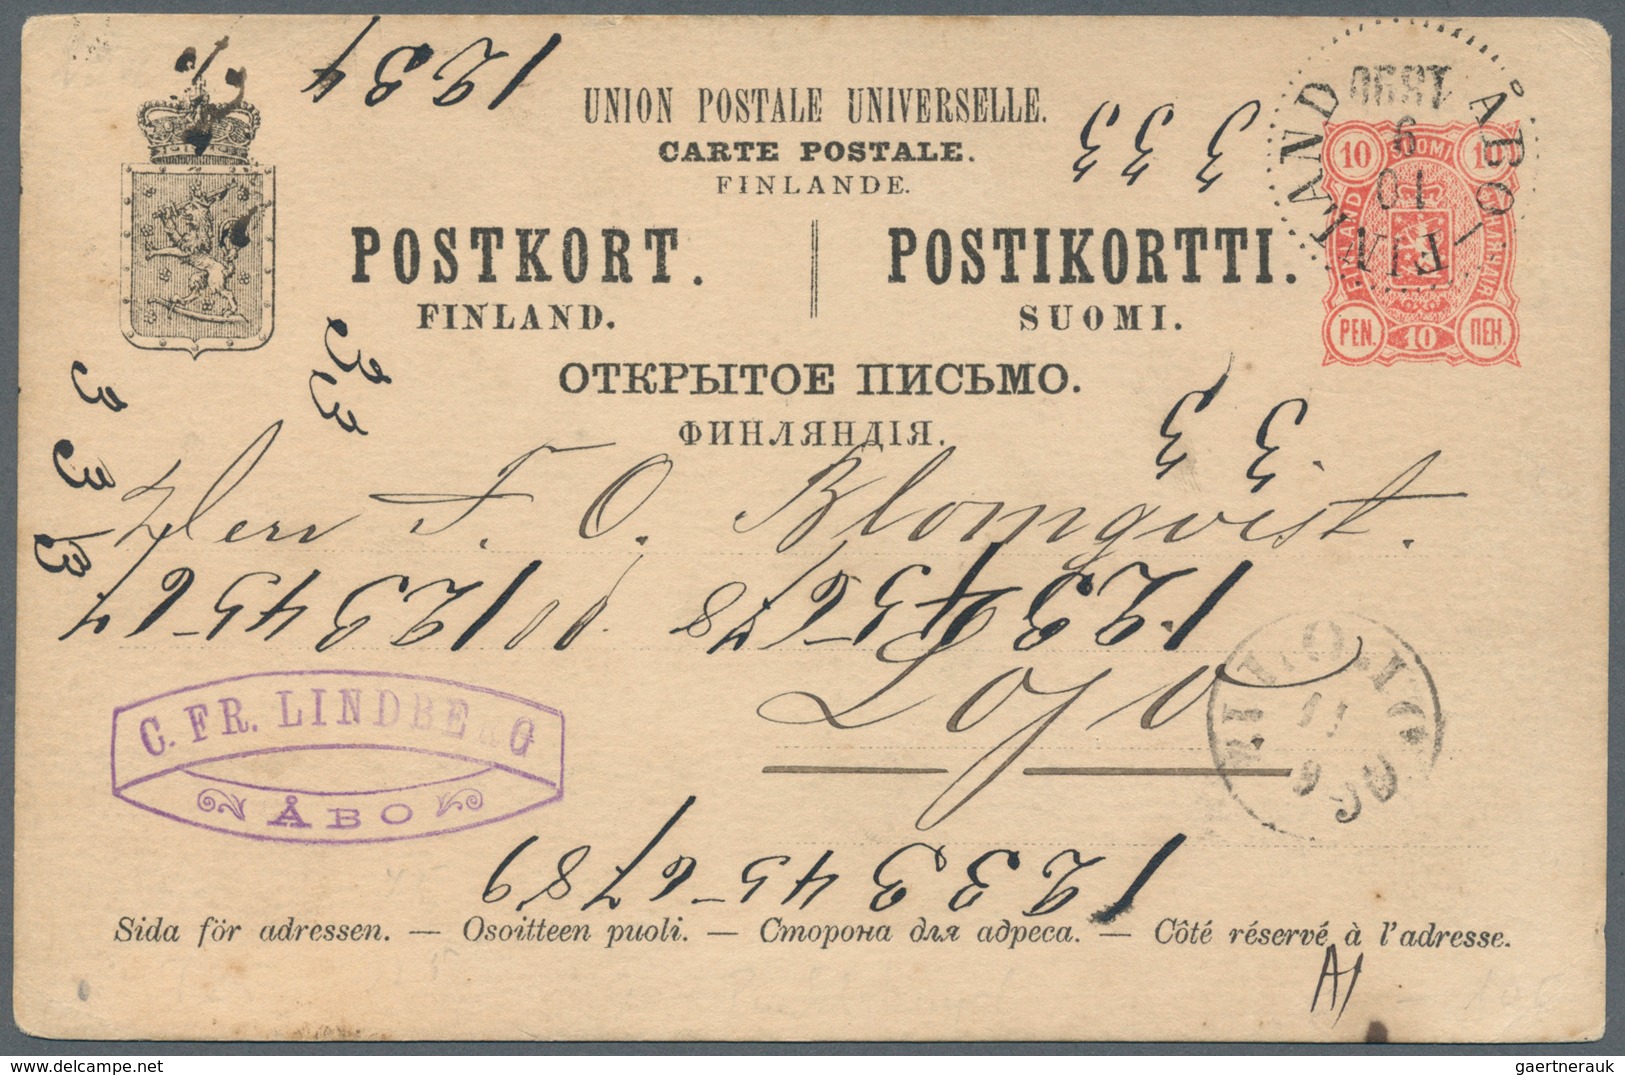 1234
UNION POSTALE UNIVERSELLE.
CARTE POSTALE.
FINLANDE.
333
POSTKORT.
FINLAND.
POSTIKORTTI.
SUOMI.
ОТКРЫТОЕ ПИСЬМО.
ФИНЛЯНДІЯ.
ÅBO
FINLAND
1890
9
10
10 SUOMI 10
FINLAND
ФИНЛЯНДІЯ
PEN. 10 ПЕН.
33
333
33
Herr F. O. Blomqvist.
Lojo
1234567
C. FR. LINDBERG
ÅBO
11
9
1233456789
Sida för adressen. — Osoitteen puoli. — Сторона для адреса. — Côté réservé à l'adresse.
A1
gaertnerauk